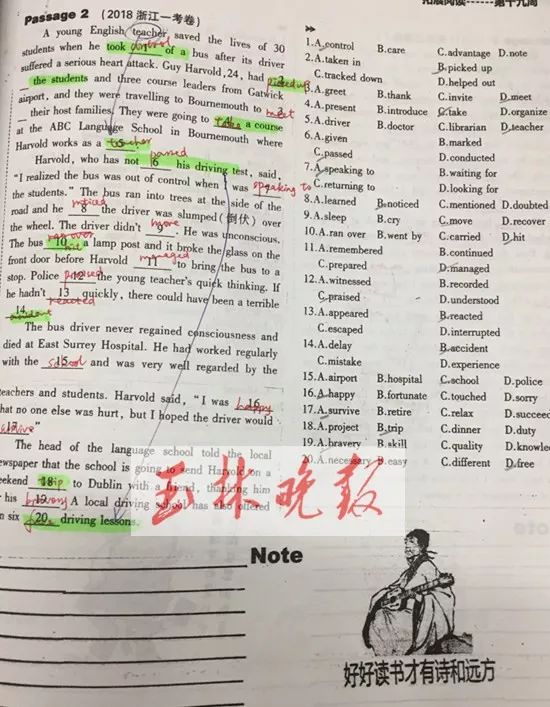 拓展阅读------第十九周
Passage 2 (2018 浙江一考卷)
A young English teacher saved the lives of 30
students when he took 1 of a bus after its driver
suffered a serious heart attack. Guy Harvold, 24, had 2
the students and three course leaders from Gatwick
airport, and they were travelling to Bournemouth to 3
meet
their host families. They were going to 4 a course
take
at the ABC Language School in Bournemouth where
Harvold works as a 5
teacher
Harvold, who has not 6 his driving test, said,
passed
"I realized the bus was out of control when I was 7
speaking to
the students." The bus ran into trees at the side of the
road and he 8 the driver was slumped(倒伏) over
noticed
the wheel. The driver didn't 9. He was unconscious.
move
The bus 10 a lamp post and it broke the glass on the
hit
front door before Harvold 11 to bring the bus to a
managed
stop. Police 12 the young teacher's quick thinking. If
praised
he hadn't 13 quickly, there could have been a terrible
reacted
14
accident
The bus driver never regained consciousness and
died at East Surrey Hospital. He had worked regularly
with the 15 and was very well regarded by the
school
teachers and students. Harvold said, "I was 16
happy
that no one else was hurt, but I hoped the driver would
17 "
survive
The head of the language school told the local
newspaper that the school is going to send Harvold on a
weekend 18 to Dublin with a friend, thanking him
trip
for his 19 A local driving school has also offered
bravery
him six 20 driving lessons.
free
1.A.control B.care C.advantage D.note
2.A.taken in B.picked up
C.tracked down D.helped out
3.A.greet B.thank C.invite D.meet
4.A.present B.introduce C.take D.organize
5.A.driver B.doctor C.librarian D.teacher
6.A.given B.marked
C.passed D.conducted
7.A.speaking to B.waiting for
C.returning to D.looking for
8.A.learned B.noticed C.mentioned D.doubted
9.A.sleep B.cry C.move D.recover
10.A.ran over B.went by C.carried D.hit
11.A.remembered B.continued
C.prepared D.managed
12.A.witnessed B.recorded
C.praised D.understood
13.A.appeared B.reacted
C.escaped D.interrupted
14.A.delay B.accident
C.mistake D.experience
15.A.airport B.hospital C.school D.police
16.A.happy B.fortunate C.touched D.sorry
17.A.survive B.retire C.relax D.succeed
18.A.project B.trip C.dinner D.duty
19.A.bravery B.skill C.quality D.knowle
20.A.necessary B.easy C.different D.free
玉林晚报
Note
好好读书才有诗和远方